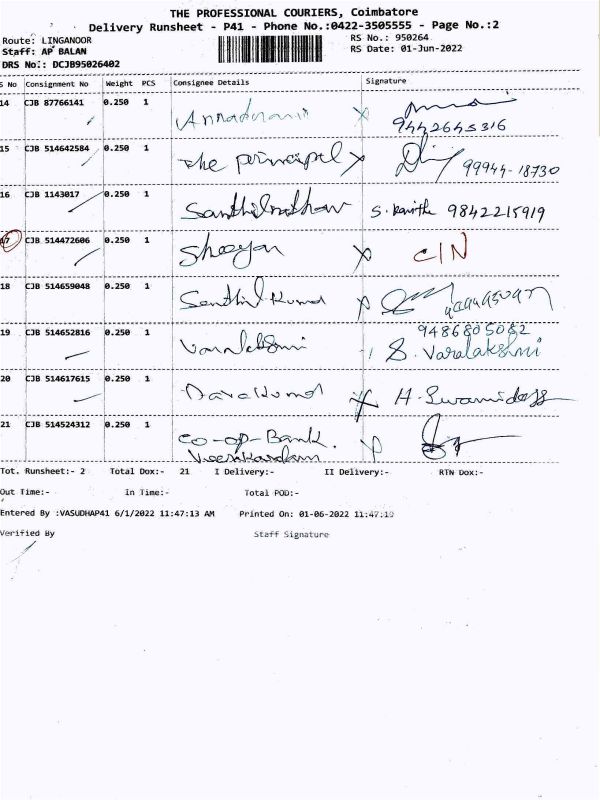 THE PROFESSIONAL COURIERS, Coimbatore
Delivery Runsheet - P41 - Phone No.:0422-3505555 - Page No.:2
Route: LINGANOOR RS No.: 950264
Staff: AP BALAN RS Date: 01-Jun-2022
DRS No.: DCJB95026402
S No Consignment No Weight PCS Consignee Details Signature
14 CJB 87766141 0.250 1
9442645316
15 CJB 514642584 0.250 1 The principal x 99944-18730
16 CJB 1143017 0.250 1 Santhilnathan S. Kavitha 9842215919
17 CJB 514472606 0.250 1 x CIN
18 CJB 514659048 0.250 1 Senthil Kumar x
19 CJB 514652816 0.250 1 Varalakshmi 9486805082
S. Varalakshmi
20 CJB 514617615 0.250 1 x H. Swamidass
21 CJB 514524312 0.250 1 Co-op-Bank. x
Tot. Runsheet:- 2 Total Dox:- 21 I Delivery:- II Delivery:- RTN Dox:-
Out Time:- In Time:- Total POD:-
Entered By :VASUDHAP41 6/1/2022 11:47:13 AM Printed On: 01-06-2022 11:47:19
Verified By Staff Signature